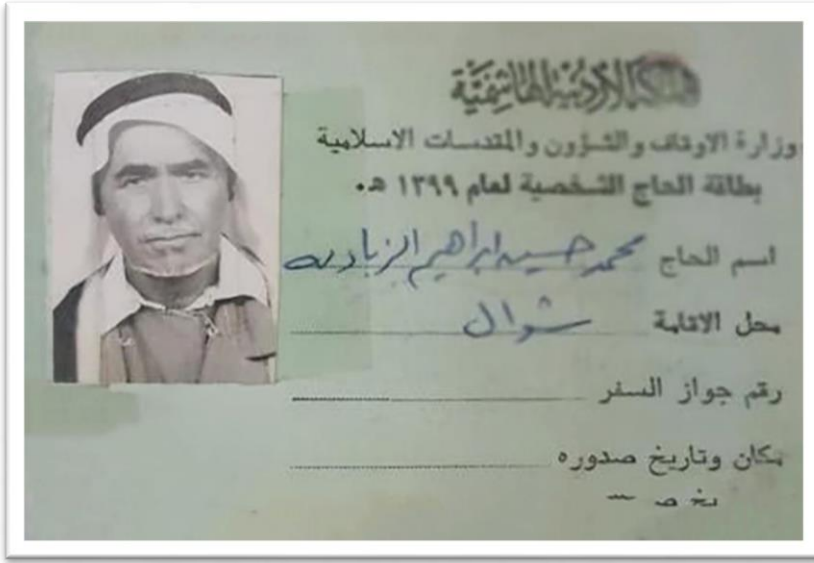 المملكة الأردنية الهاشمية
وزارة الاوقاف والشؤون والمقدسات الاسلامية
بطاقة الحاج الشخصية لعام ١٣٩٩ هـ.
اسم الحاج محمد حسين ابراهيم الزيادنه
محل الاقامة شوال
رقم جواز السفر
مكان وتاريخ صدوره